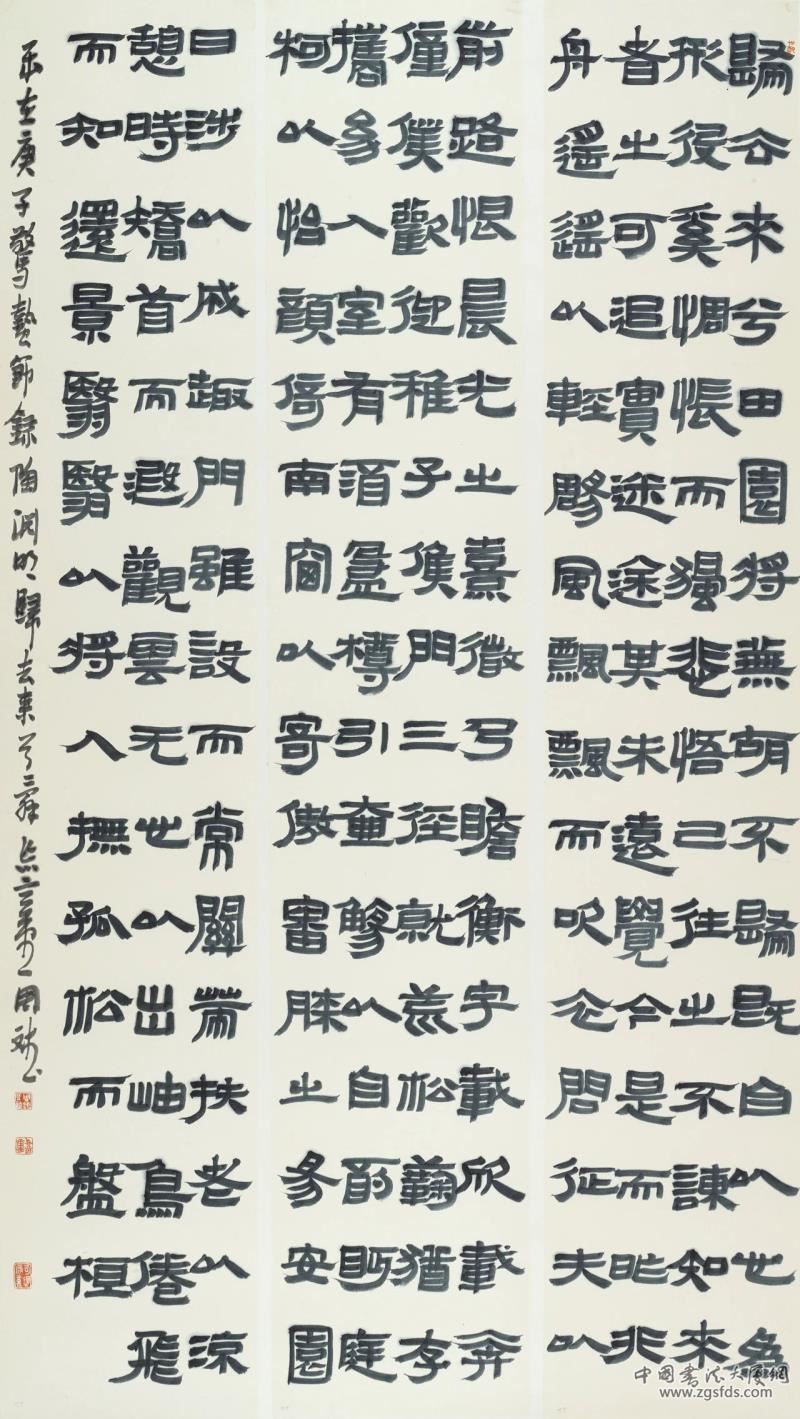 歸去來兮田園將蕪胡不歸既自以心為
形役奚惆悵而獨悲悟已往之不諫知來
者之可追實迷途其未遠覺今是而昨非
舟遙遙以輕颺風飄飄而吹衣問征夫以
前路恨晨光之熹微乃瞻衡宇載欣載奔
僮僕歡迎稚子候門三徑就荒松菊猶存
攜幼入室有酒盈樽引壺觴以自酌眄庭
柯以怡顏倚南窗以寄傲審膝之易安園
日涉以成趣門雖設而常關策扶老以流
憩時矯首而遐觀雲无心以出岫鳥倦飛
而知還景翳翳以將入撫孤松而盤桓
在庚子驚蟄節錄陶淵明歸去來兮辭
中國書法大廈網
www.zgsfds.com